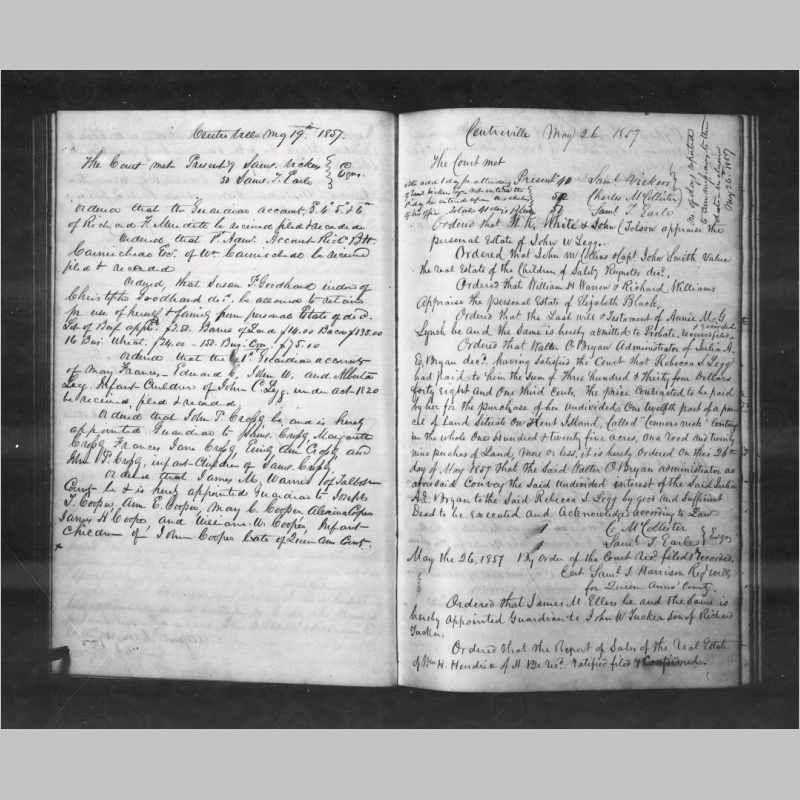 Centreville May 19th 1857.
The Court met Present Saml. Vickers
50 Saml. T. Earle Esqrs
Ordered that the Guardian account, 3d 4th 5th & 6th
of Richard F. be received filed & recorded
Ordered that 1st Admr. Account Richd B. W.
Carmichael Exr. of Wm. Carmichael be received
filed & recorded
Ordered, that Susan F. Goodhand widow of
Christopher Goodhand decd. be allowed to retain
for use of herself & family from personal Estate of decd.
Bacon $35.00
16 Bus. Wheat $24.00
$75.00
Ordered that the 1st Guardian accounts
of May Frances, Edward C, John W. and Alberta
Legg Infant Children of John C. Legg under act 1820
be received, filed & recorded
Ordered that John P. Crossy be, and is hereby
appointed Guardian to Crossy Margarett
Crossy Frances Jane Crossy Ann Crossy and
John P. Crossy, infant Children of James Crossy.
Ordered that James M. Warner of Talbot
County be & is hereby appointed Guardian to Joseph
T. Cooper Ann E. Cooper, May C. Cooper Cooper
James H. Cooper and William W. Cooper, Infant
Children of John Cooper late of Queen Ann County.
Centreville May 26 1857
The Court met
Present 40 Saml Vickers
50 Charles McCollister
50 Saml T. Earle
Ordered that W. K. White & John Tolson appraise the
personal Estate of John W Legg.
Ordered that John W. & Capt John Smith value
the real Estate of the Children of Reynolds decd.
Ordered that William H Warrow & Richard Williams
Appraise the personal Estate of Elizabeth Black,
Ordered that the Last will & Testament of Annie M. G
Lynch be and the same is hereby admitted to Probate, & recorded
Ordered that Walter O Bryan Administrator of Julia A.
E. Bryan decd. having satisfied the Court that Rebecca S. Legg
had paid to him the sum of Three hundred & thirty four Dollars
forty eight and One third Cents The price Contracted to be paid
by her for the purchase of her undivided One twelfth part of a par
cle of Land Situate on Kent Island, Called "Connors neck" Containg
in the whole One Hundred & twenty five acres, one rood and twenty
nine perches of Land, more or less, it is hereby Ordered on this 26th
day of May 1857 That the Said Walter O Bryan administrator as
aforesaid Convey the Said undivided interest of the Said Julia
A. E. Bryan to the Said Rebecca S. Legg by good and Sufficient
Deed to be executed and Acknowledged according to Law
C. McCollister
Saml T. Earle Esqrs
May the 26, 1857 By order of the Court recd filed & recorded.
Saml. T. Harrison Regr Wills
for Queen Anns County.
Ordered that James M. Ellers be and the Same is
hereby Appointed Guardian to John W Tucker son of Richard
Tucker.
Ordered that the Report of Sales of the real Estate
of Wm H. Hendrix of H be recd. ratified filed & Confirmed.
May 26. 1857